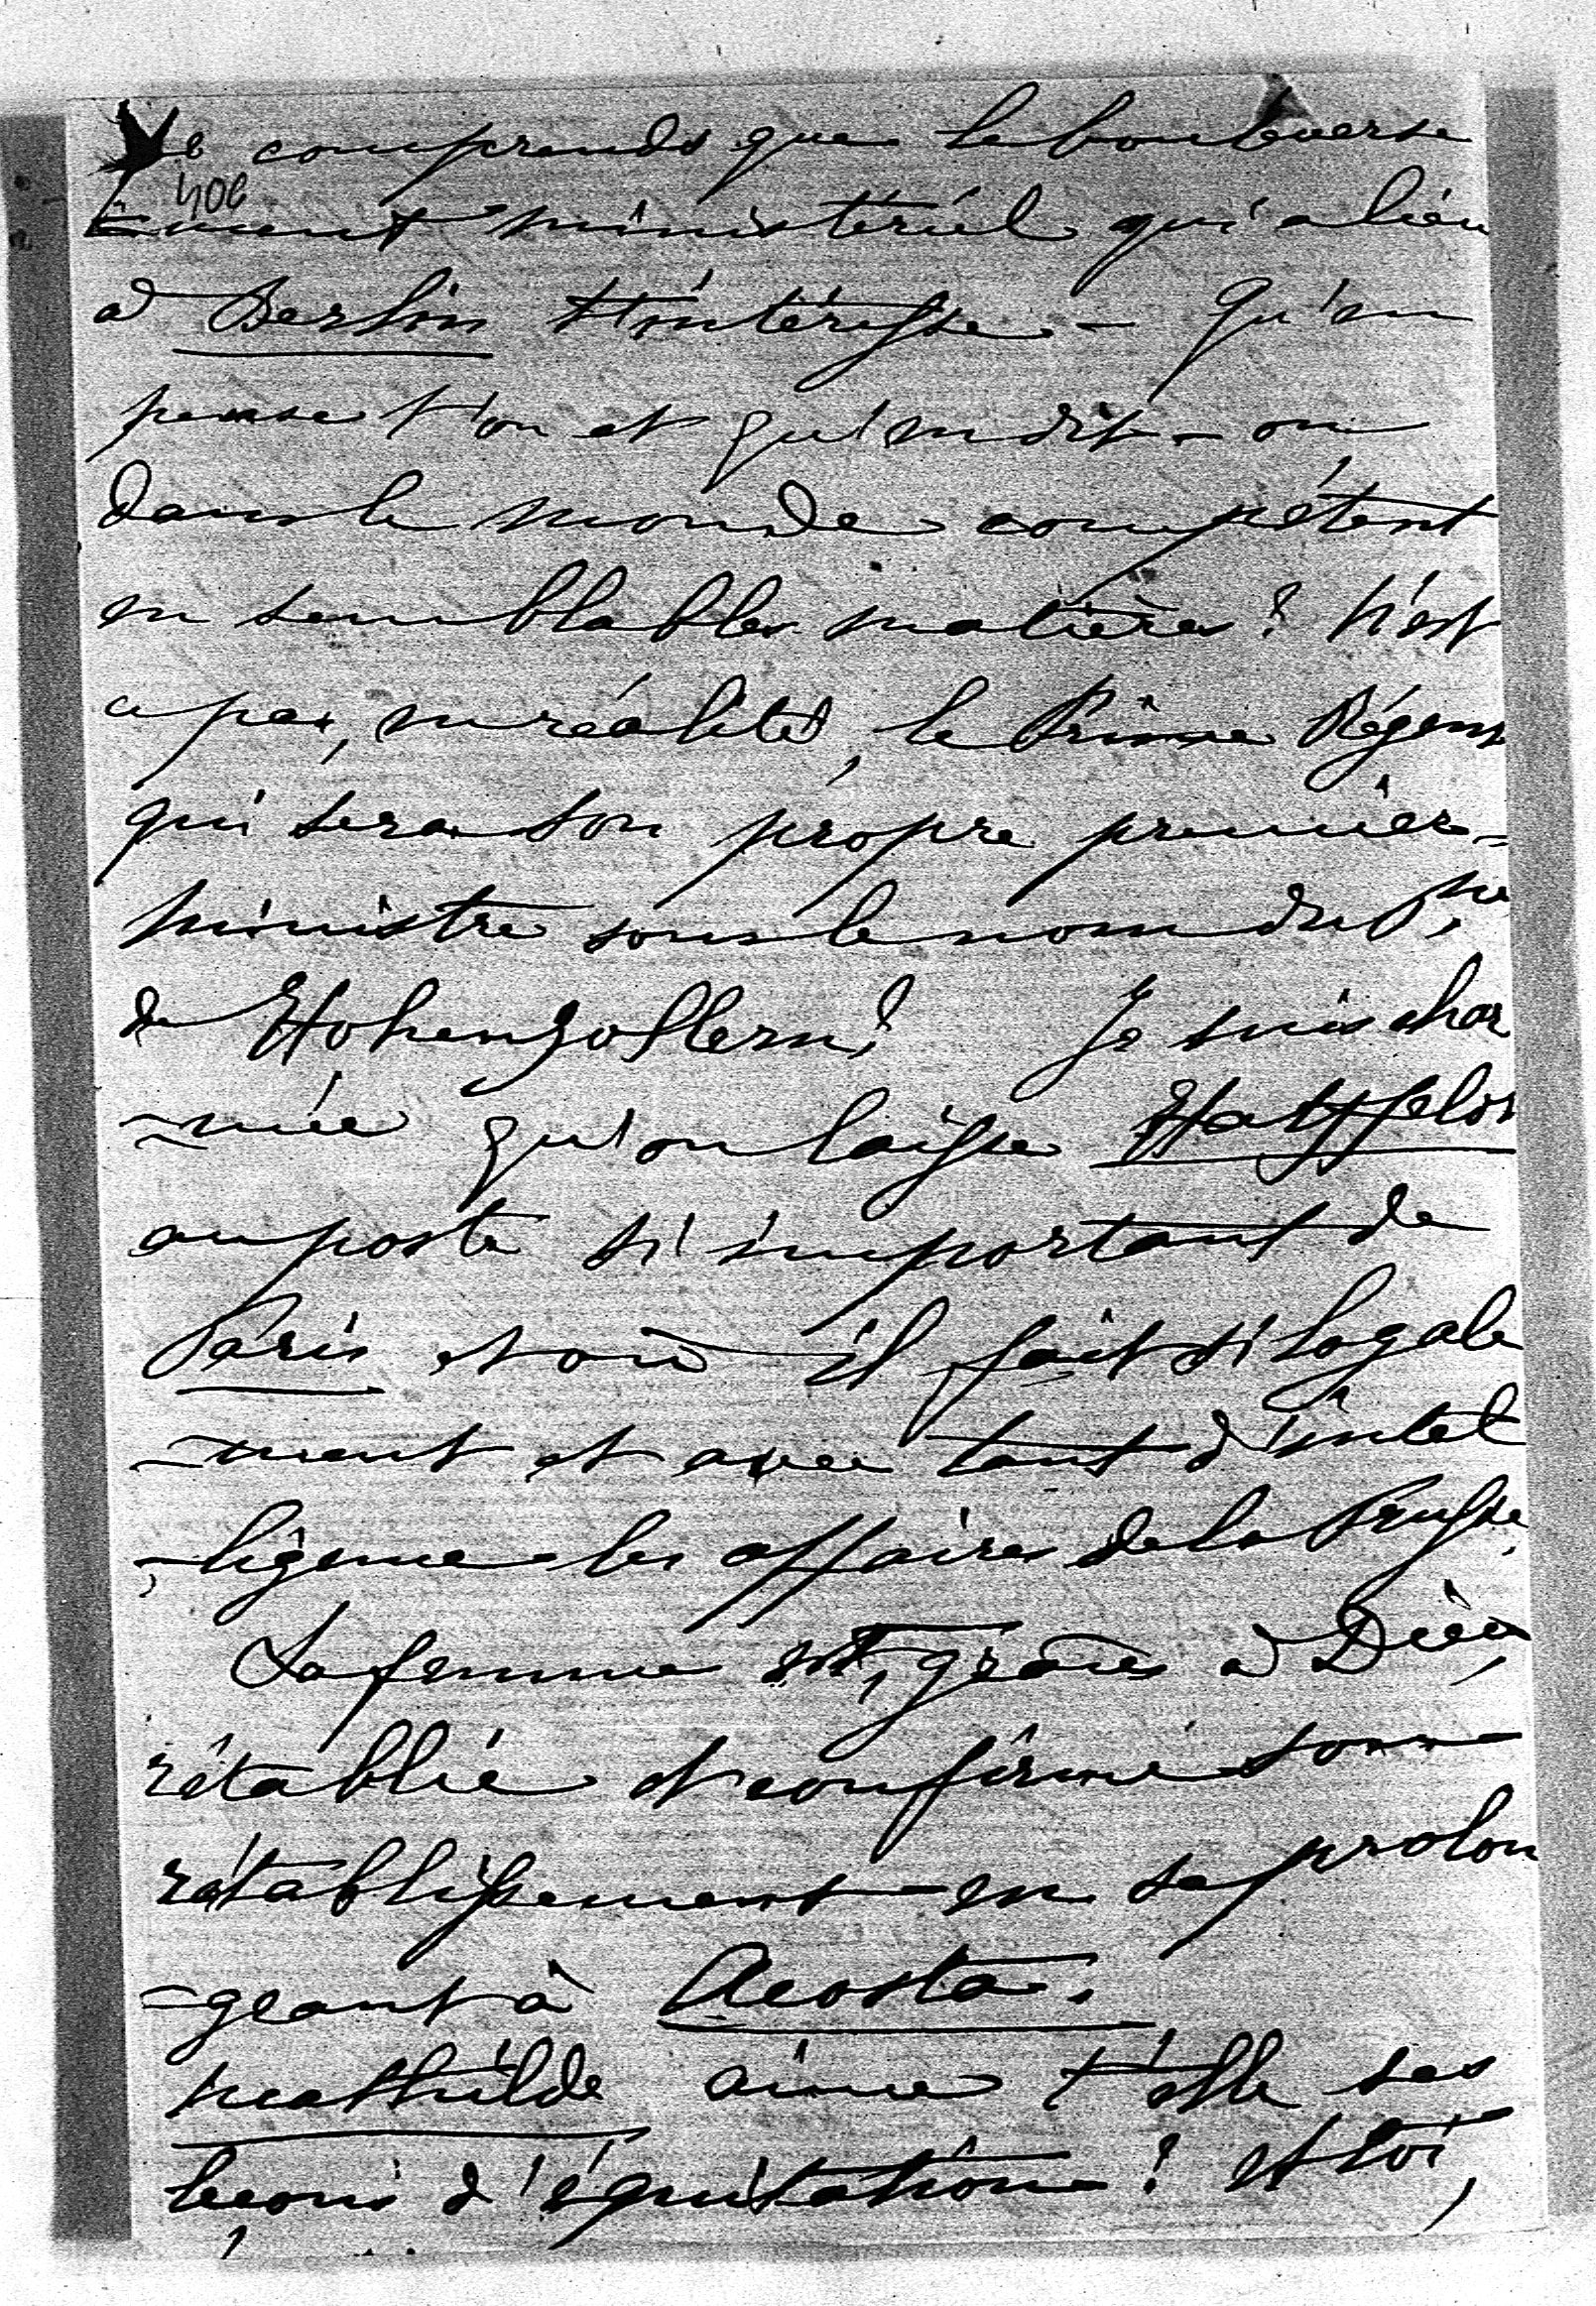 Je comprends que le bouleverse
=ment ministériel qui a lieu
à Berlin t'intéresse – Qu'en
pense t'on et qu'en dit-on
dans le monde compétent
en semblables matières? N'est
ce pas, en réalité, le Prince Régent
qui sera son propre premier-
ministre sous le nom du Pce
de Hohenzollern? Je suis char
-mée qu'on laisse Hatzfeldt
au poste si important de
Paris et où il fait si loyale
-ment et avec tant d'intel
-ligence les affaires de la Prusse.
Sa femme est, grâces à Dieu,
rétablie et confirme son
rétablissement en se prolon
-geant à Acosta.
Mathilde aime t'elle ses
leçons d'équitation? Et toi,